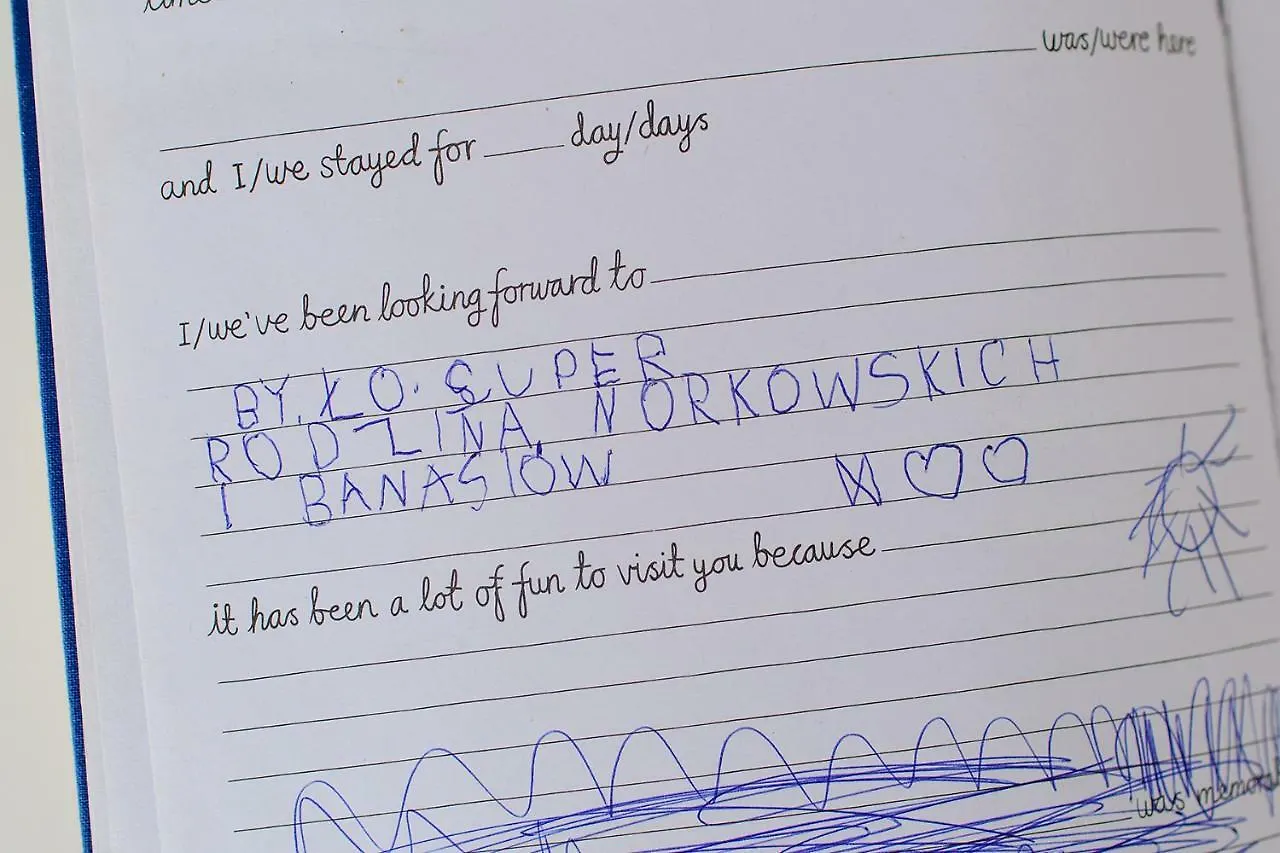 was/were here
and I/we stayed for ____ day/days
I/we've been looking forward to
BY.ŁO. SUPER
RODZINA NORKOWSKICH
I BANASIÓW
it has been a lot of fun to visit you because
was memora